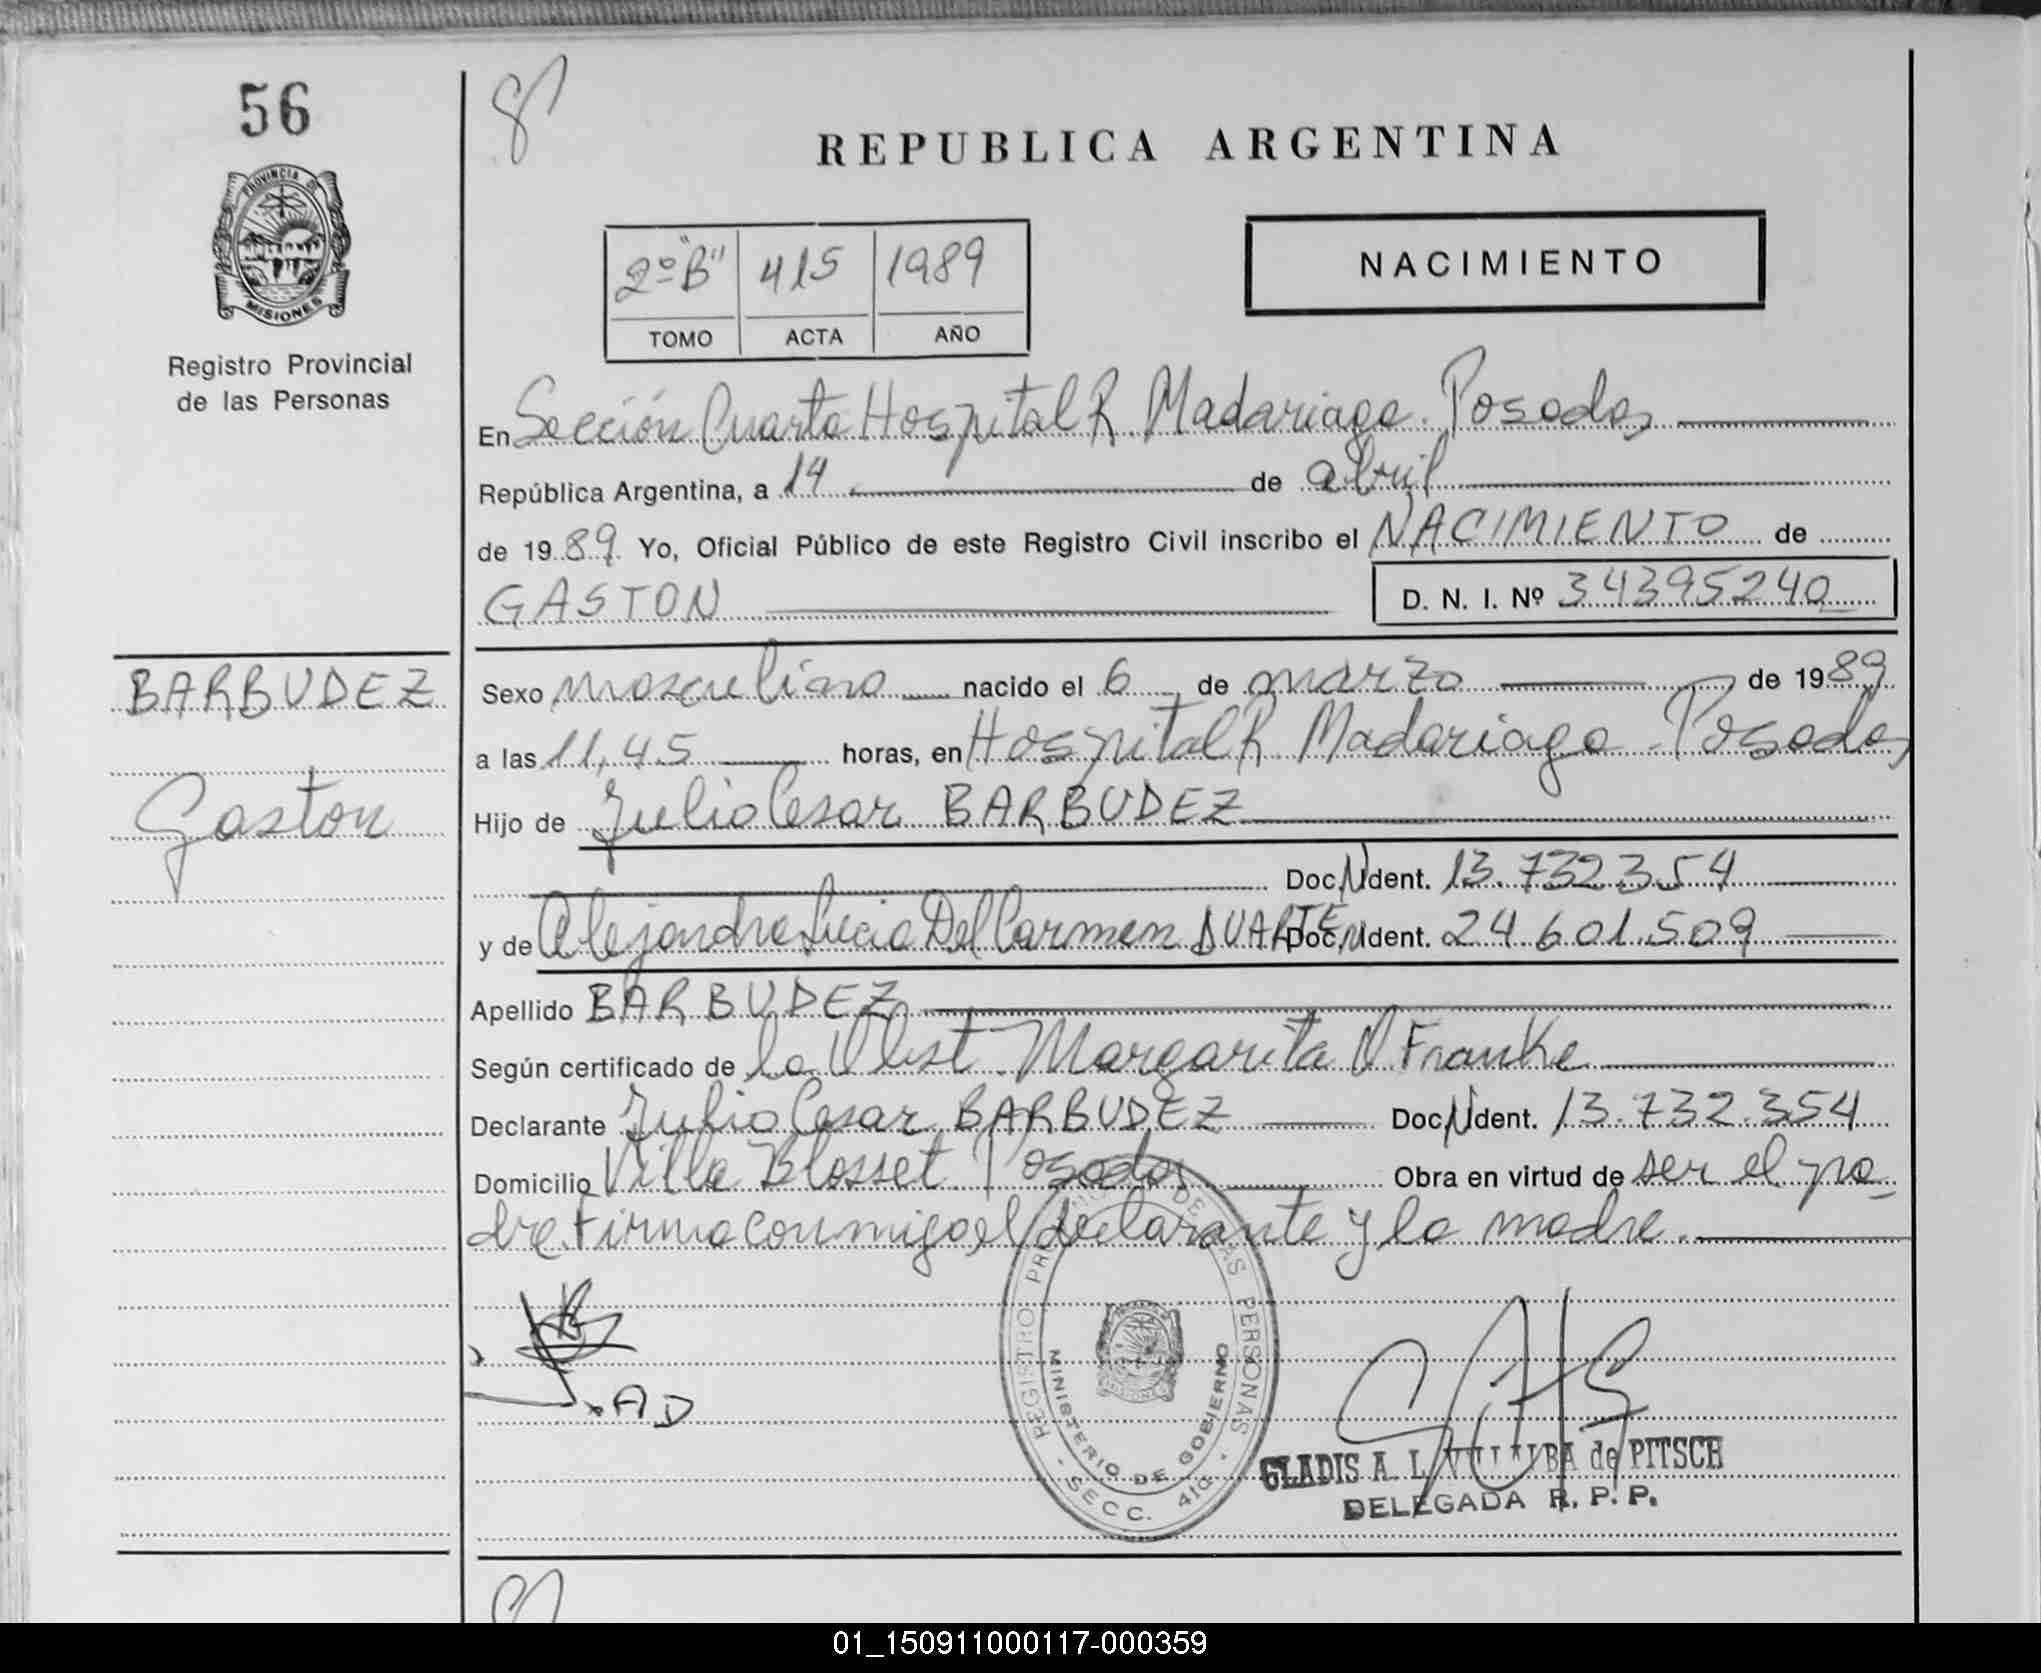 56
PROVINCIA DE
MISIONES
Registro Provincial
de las Personas
REPUBLICA ARGENTINA
2º "B" 415 1989
TOMO ACTA AÑO
NACIMIENTO
En Sección Cuarta Hospital R. Madariaga. Posadas
República Argentina, a 14 de abril
de 1989 Yo, Oficial Público de este Registro Civil inscribo el NACIMIENTO de
GASTON D. N. I. Nº 34395240
BARBUDEZ
Gaston
Sexo masculino nacido el 6 de marzo de 1989
a las 11,45 horas, en Hospital R. Madariaga - Posadas
Hijo de Julio Cesar BARBUDEZ
Doc. N Ident. 13.732.354
y de Alejandra Lucia Del Carmen DUARTE Doc. N Ident. 24.601.509
Apellido BARBUDEZ
Según certificado de la Obst. Margarita O. Franke
Declarante Julio Cesar BARBUDEZ Doc. N Ident. 13.732.354
Domicilio Villa Blosset Posadas Obra en virtud de ser el pa-
dre. Firma conmigo el declarante y la madre.
A D
REGISTRO PROVINCIAL DE LAS PERSONAS
MINISTERIO DE GOBIERNO
- SECC. 4ta -
GLADIS A. L. VILLALBA de PITSCH
DELEGADA R. P. P.
01_150911000117-000359